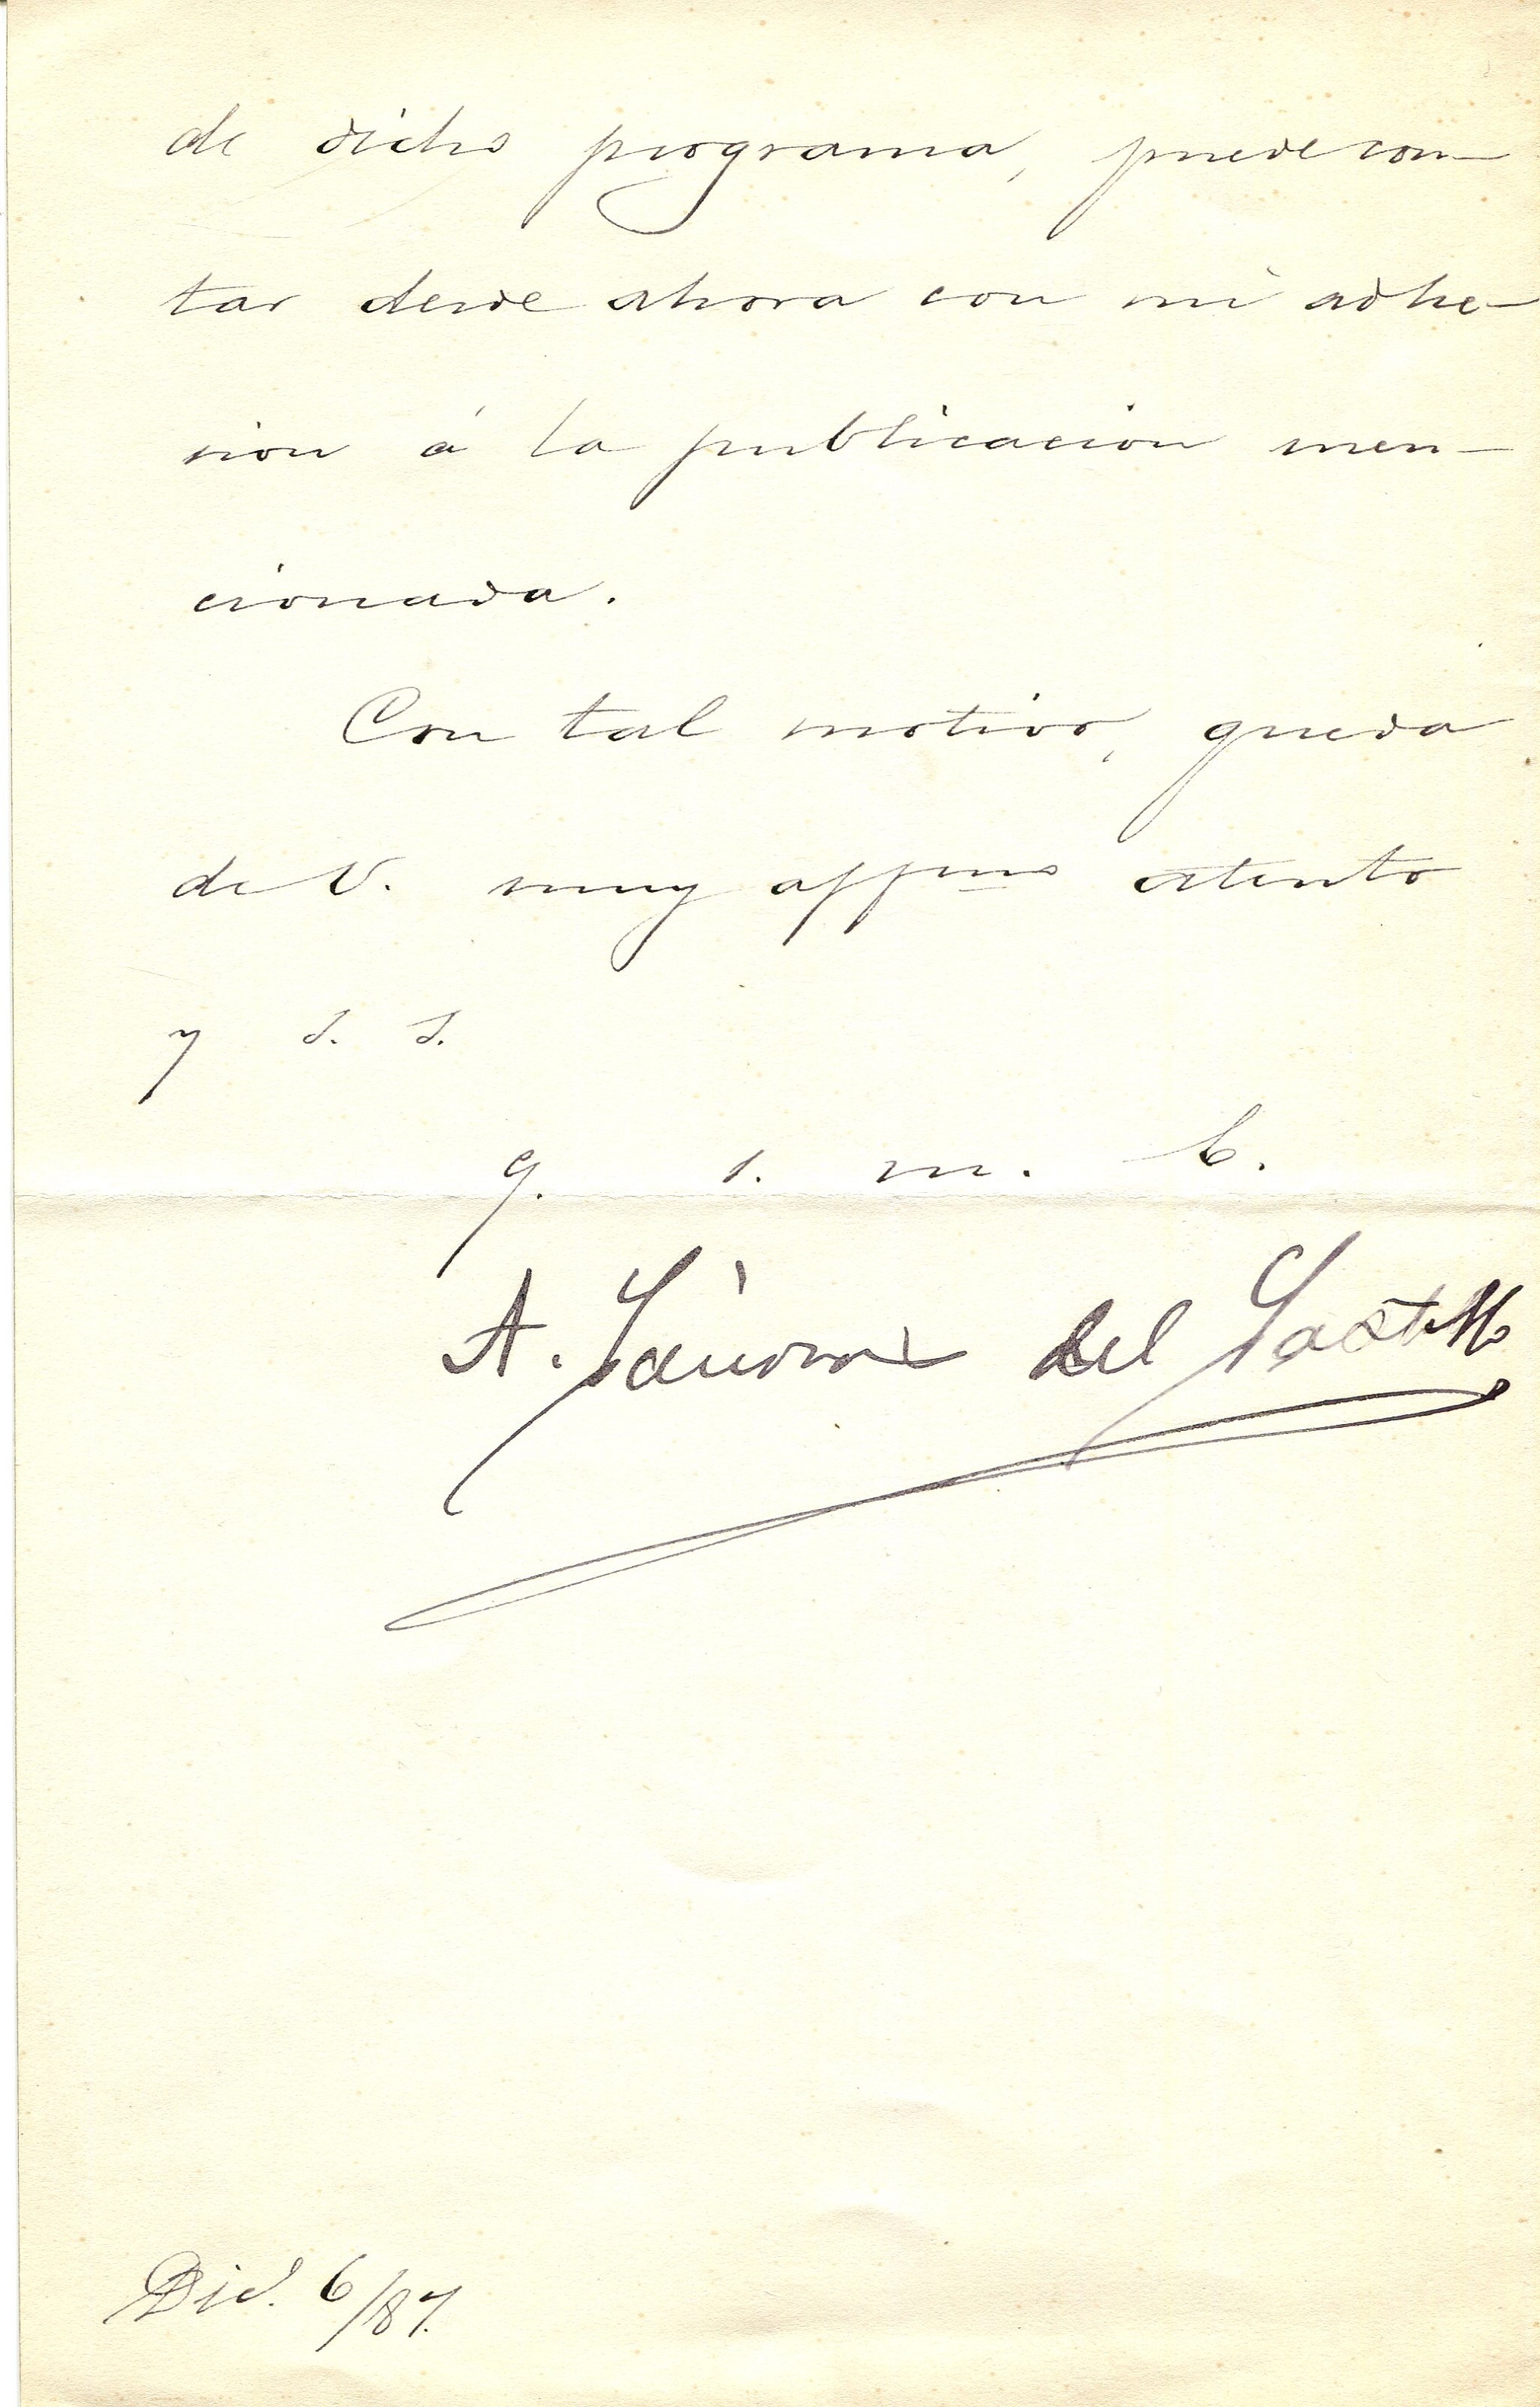 de dicho programa, puede con-
tar desde ahora con mi adhe-
sion á la publicacion men-
cionada.
Con tal motivo, queda
de V. muy affmo atento
y S. S.
q. s. m. b.
A. Cánovas del Castillo
Dic. 6/87.